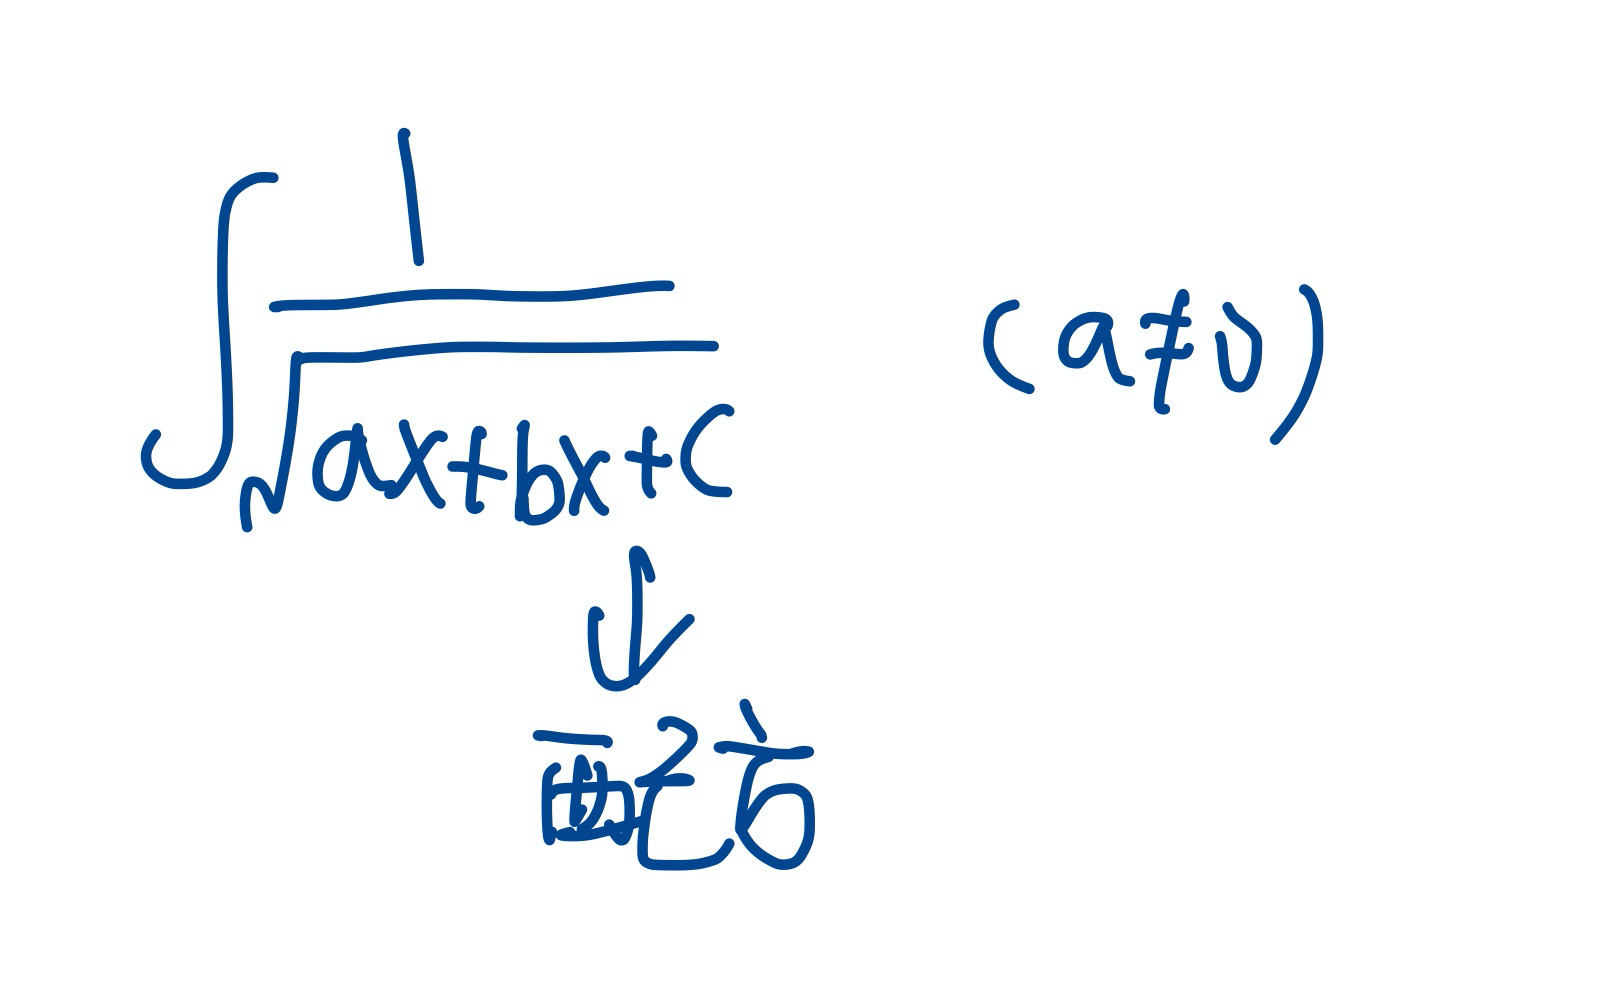 ∫ 1/√(ax+bx+c) (a≠0)
↓
配方